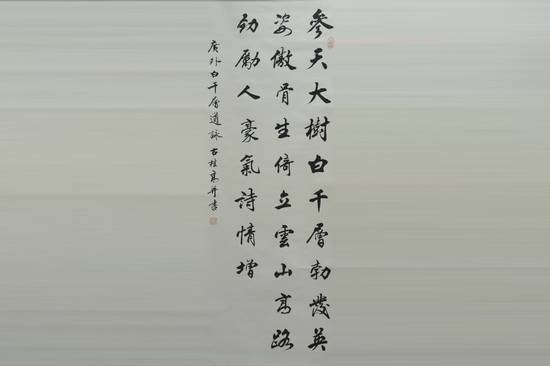 參天大樹白千層勃發英
姿傲骨生倚立雲山高路
勁勵人豪氣詩情增
廣外白千層道詠 古桂高